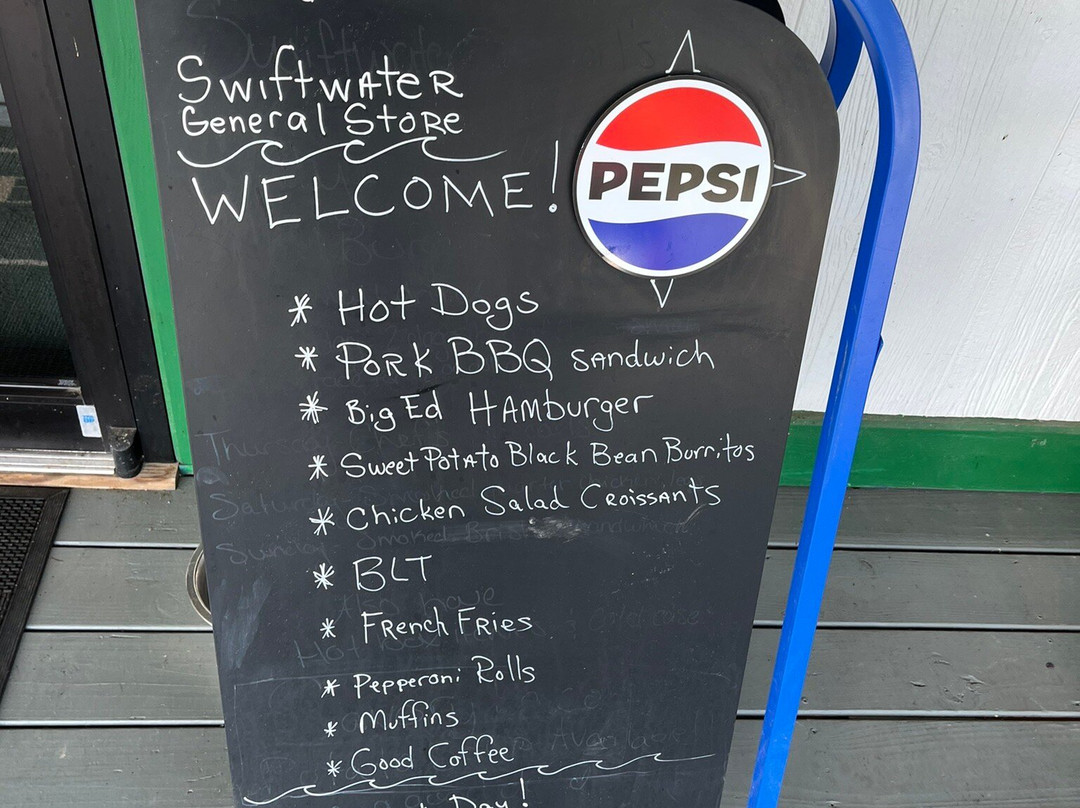 Swiftwater
General Store
WELCOME!
PEPSI
* Hot Dogs
* Pork BBQ Sandwich
* Big Ed Hamburger
* Sweet Potato Black Bean Burritos
* Chicken Salad Croissants
* BLT
* French Fries
* Pepperoni Rolls
* Muffins
* Good Coffee
Day!